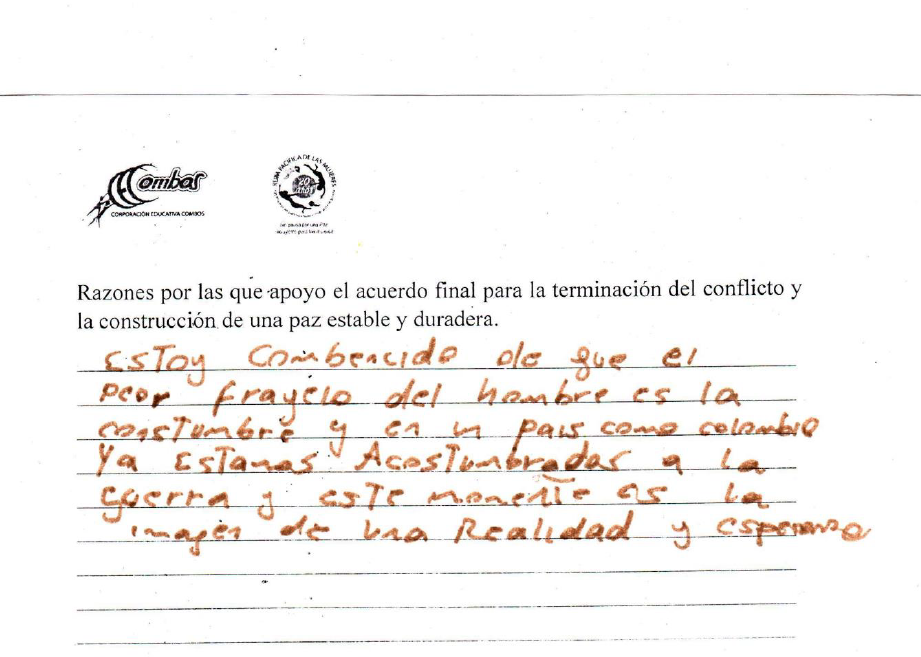 Combos
CORPORACIÓN EDUCATIVA COMBOS
RUTA PACÍFICA DE LAS MUJERES
20
AÑOS
Razones por las que apoyo el acuerdo final para la terminación del conflicto y
la construcción de una paz estable y duradera.
ESTOY Combencido de que el
peor frayelo del hombre es la
constumbre y en un pais como colombia
Ya ESTamos AcosTumbrados a la
guerra y este momento es la
imagen de una Realidad y esperanza